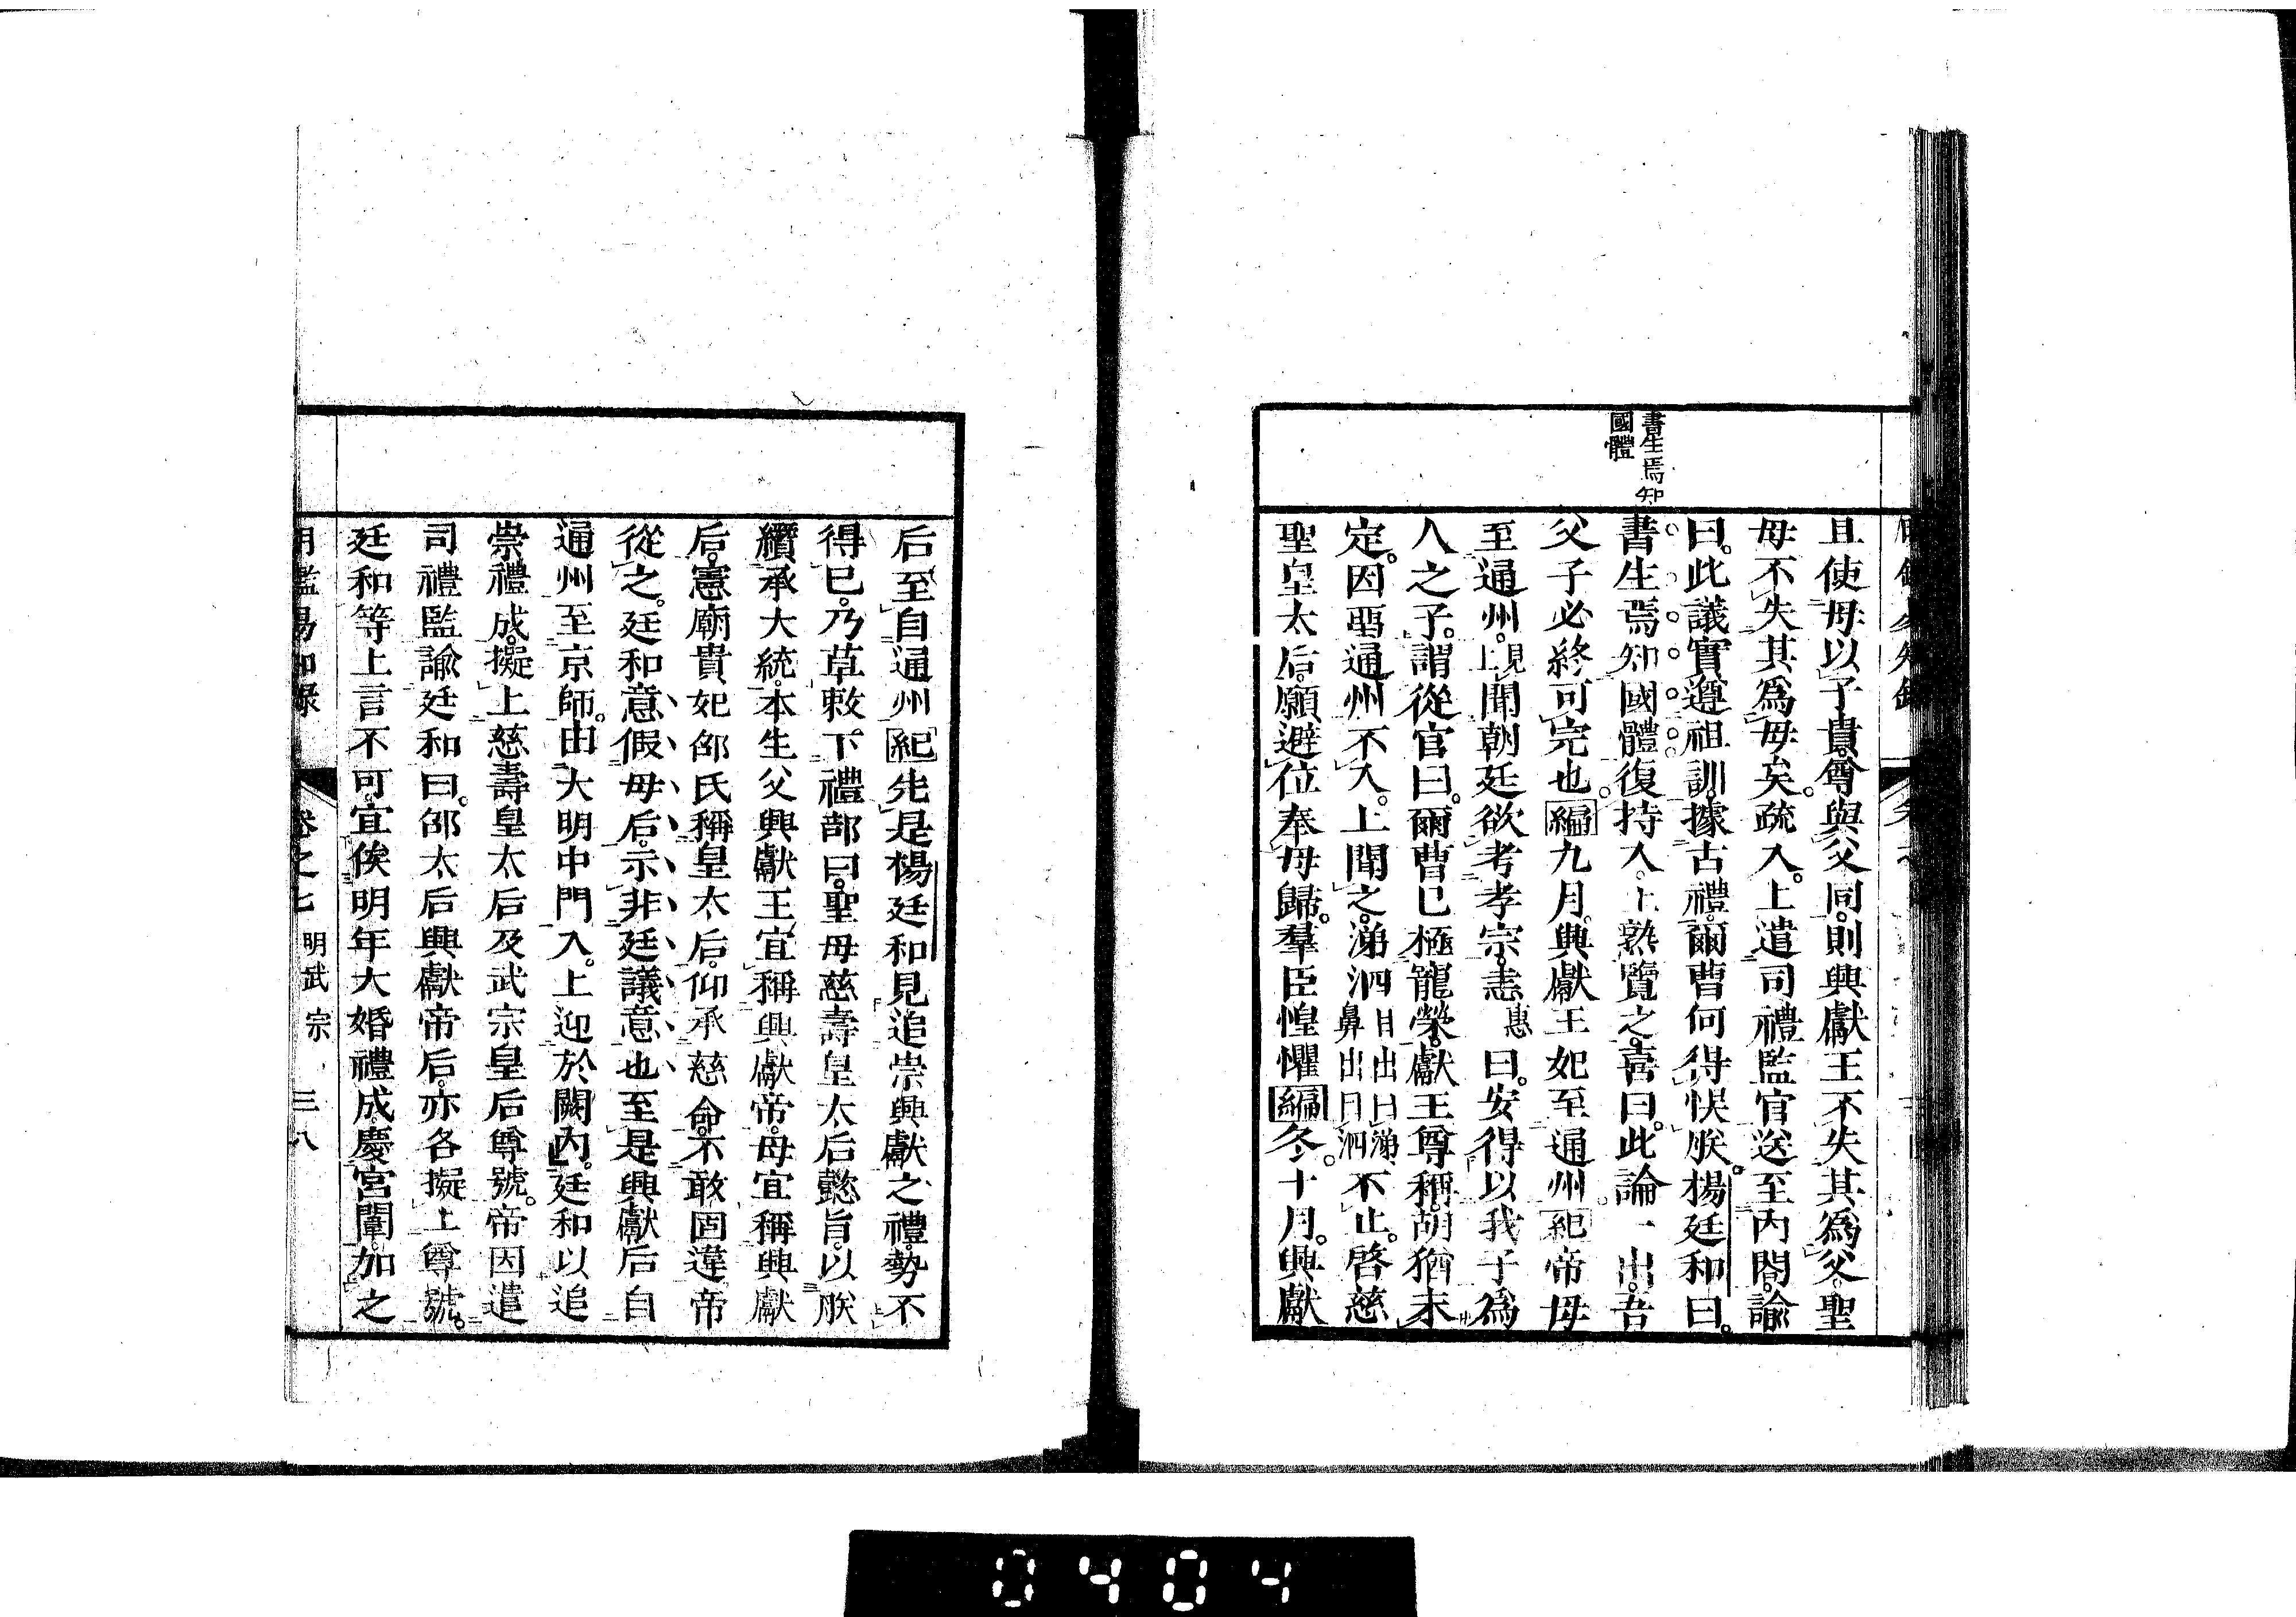 書生焉知
國體
且使母以子貴尊與父同則興獻王不失其爲父聖
母不失其爲母矣疏入上遣司禮監官送至內閣諭
曰此議實遵祖訓據古禮爾曹何得悞朕楊廷和曰
書生焉知國體復持入上熟覽之喜曰此論一出吾
父子必終可完也編九月興獻王妃至通州紀帝母
至通州上見聞朝廷欲考孝宗恚惠曰安得以我子爲
人之子謂從官曰爾曹已極寵榮獻王尊稱胡猶未
定因畱通州不入上聞之涕泗目出曰涕鼻出曰泗不止啓慈
聖皇太后願避位奉母歸羣臣惶懼編冬十月興獻
后至自通州紀先是楊廷和見追崇興獻之禮勢不
得已乃草敕下禮部曰聖母慈壽皇太后懿旨以朕
纘承大統本生父興獻王宜稱興獻帝母宜稱興獻
后憲廟貴妃邵氏稱皇太后仰承慈命不敢固違帝
從之廷和意假母后示非廷議意也至是興獻后自
通州至京師由大明中門入上迎於闕內廷和以追
崇禮成擬上慈壽皇太后及武宗皇后尊號帝因遣
司禮監諭廷和曰邵太后興獻帝后亦各擬上尊號
廷和等上言不可宜俟明年大婚禮成慶宮闈加之
明鑑易知錄 卷之七 明武宗 三八